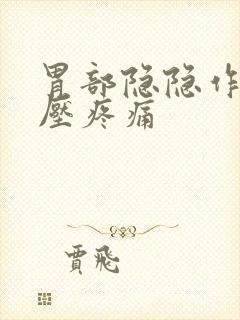 胃部隐隐作
壓疼痛
賈飛